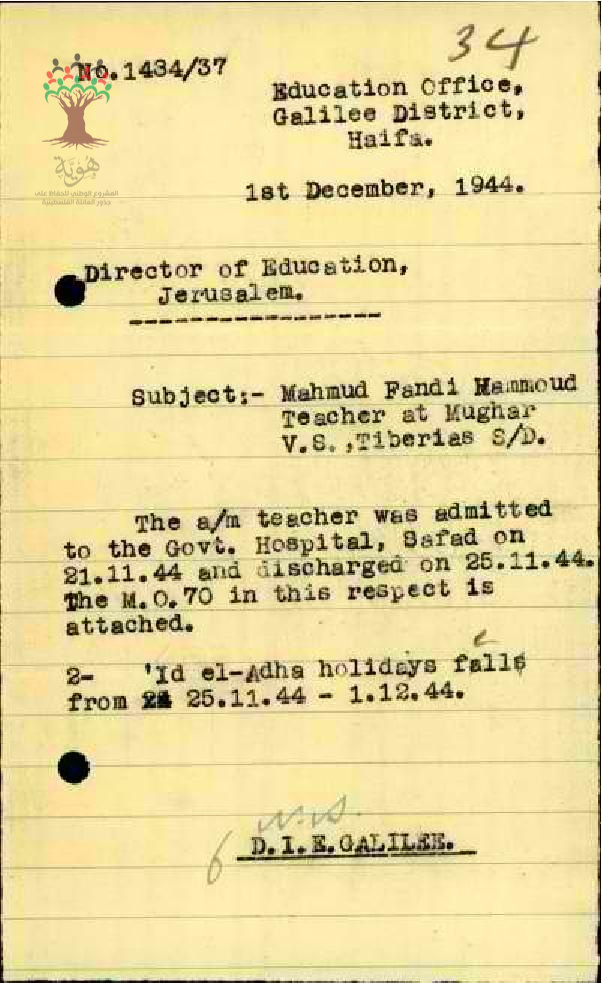 34
No.1434/37
Education Office,
Galilee District,
Haifa.
هَوِيَّة
المشروع الوطني للحفاظ على
جذور العائلة الفلسطينية
1st December, 1944.
Director of Education,
Jerusalem.
Subject:- Mahmud Fandi Hammoud
Teacher at Mughar
V.S.,Tiberias S/D.
The a/m teacher was admitted
to the Govt. Hospital, Safad on
21.11.44 and discharged on 25.11.44.
The M.O.70 in this respect is
attached.
2- 'Id el-Adha holidays falls
from 25.11.44 - 1.12.44.
D.I.E.GALILEE.